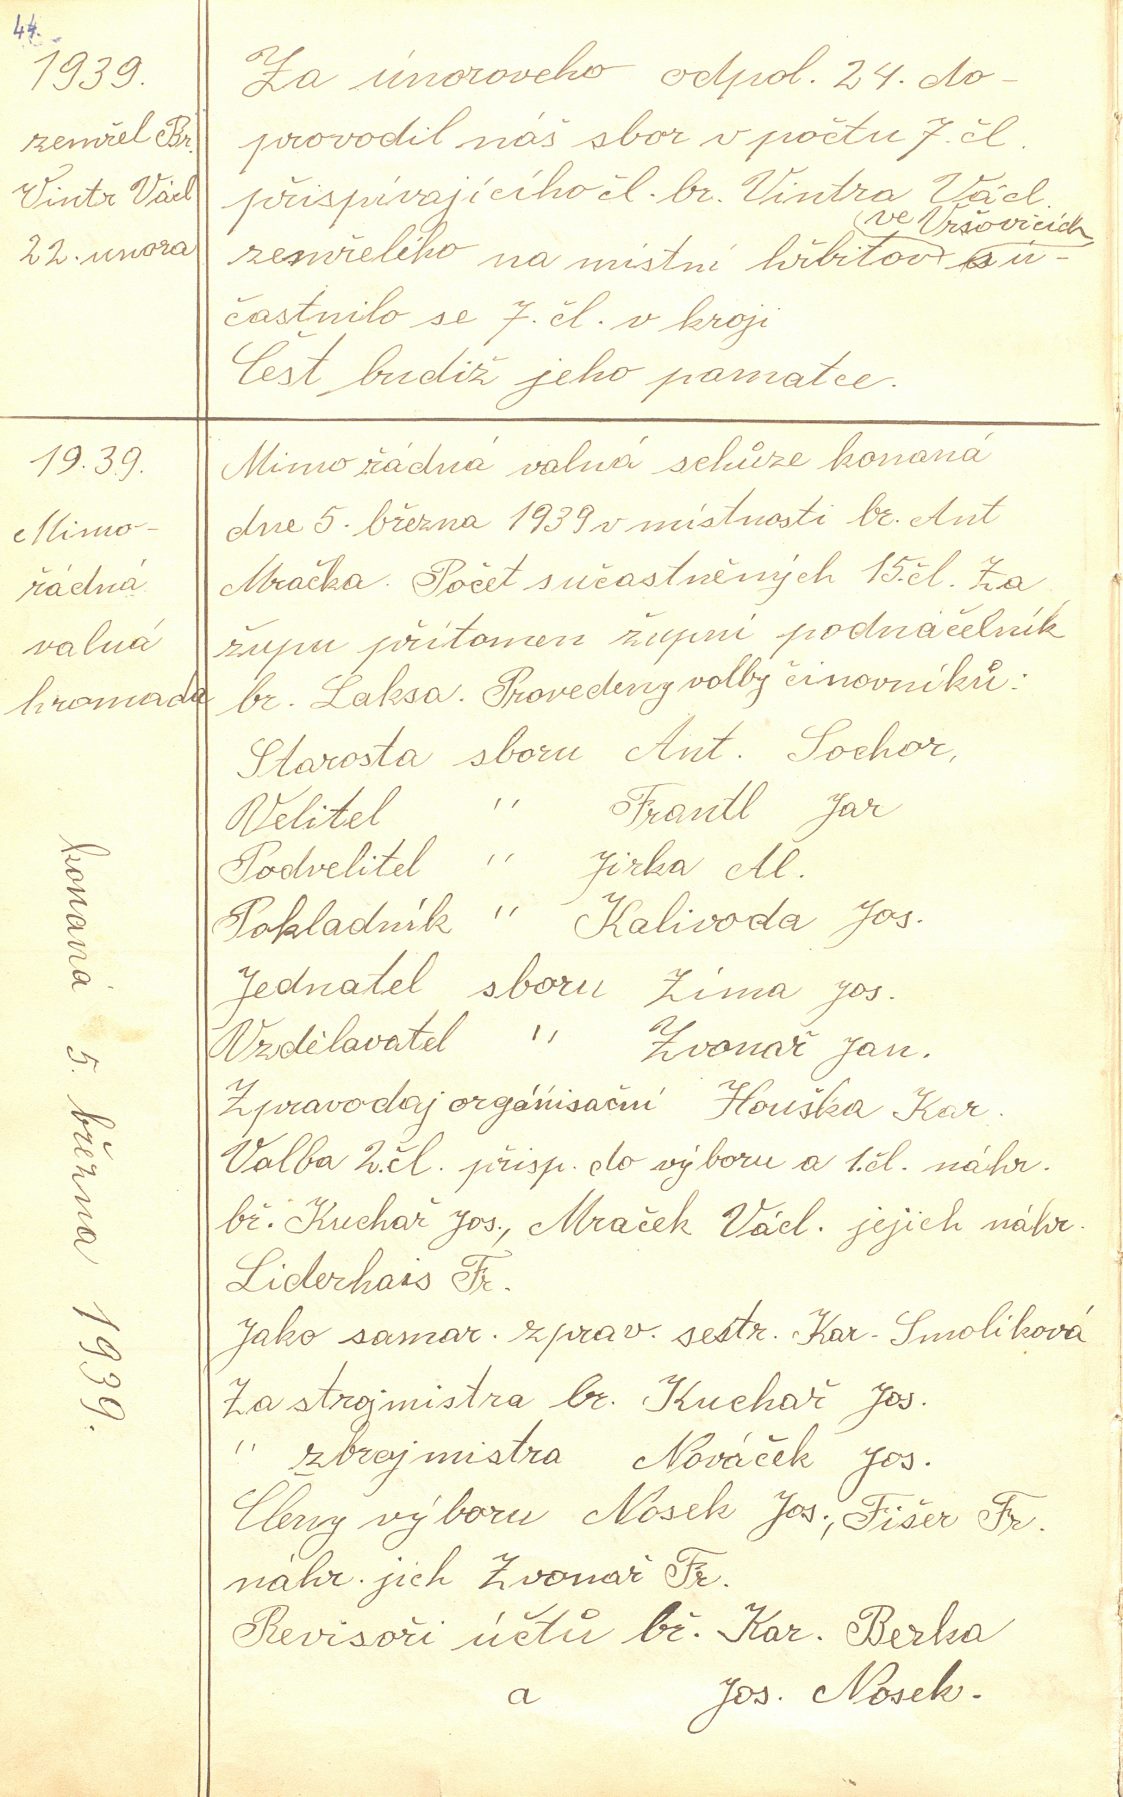 44.
1939.
zemřel Br.
Vintr Václ
22. unora
Za únoroveho odpol. 24. do-
provodil náš sbor v počtu 7. čl.
přispívajícího čl. br. Vintra Václ.
ve Vršovicích
zemřelého na místní hřbitov a ú-
častnilo se 7. čl. v kroji
Čest budiž jeho pamatce.
19.39.
Mimo-
řádná
valná
hromada
konaná 5. března 1939.
Mimořádná valná schůze konaná
dne 5. března 1939 v místnosti br. Ant
Mračka. Počet sučastněných 15.čl. Za
župu přítomen župní podnáčelník
br. Laksa. Provedeny volby činovníků:
Starosta sboru Ant. Sochor,
Velitel " Frantl Jar
Podvelitel " Jirka Al.
Pokladník " Kalivoda Jos.
Jednatel sboru Zíma Jos.
Vzdělavatel " Zvonař Jan.
Zpravodaj orgánisační Houška Kar.
Valba 2.čl. přisp. do výboru a 1.čl. náhr.
bř. Kuchař Jos., Mraček Václ. jejich náhr.
Liderhais Fr.
Jako samar. zprav. sestr. Kar. Smolíková
Za strojmistra br. Kuchař Jos.
" zbrojmistra Nováček Jos.
Členy výboru Nosek Jos., Fišer Fr.
náhr. jich Zvonař Fr.
Revisoři účtů bř. Kar. Berka
a Jos. Nosek.